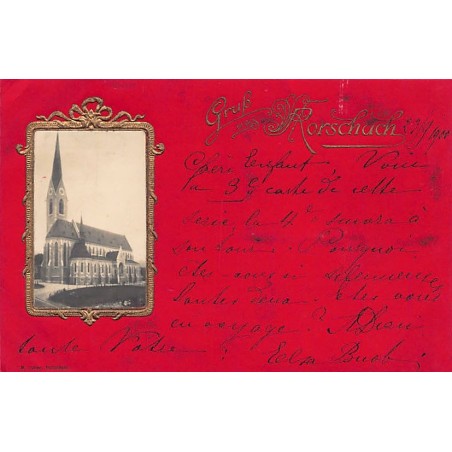 Gruß aus Rorschach 22/7 1900
Chère Enfant Voici
la 3e carte de cette
série la 4e suivra à
son tour. Pourquoi
êtes-vous si
toutes deux. êtes vous
en voyage? A Dieu
toute Votre